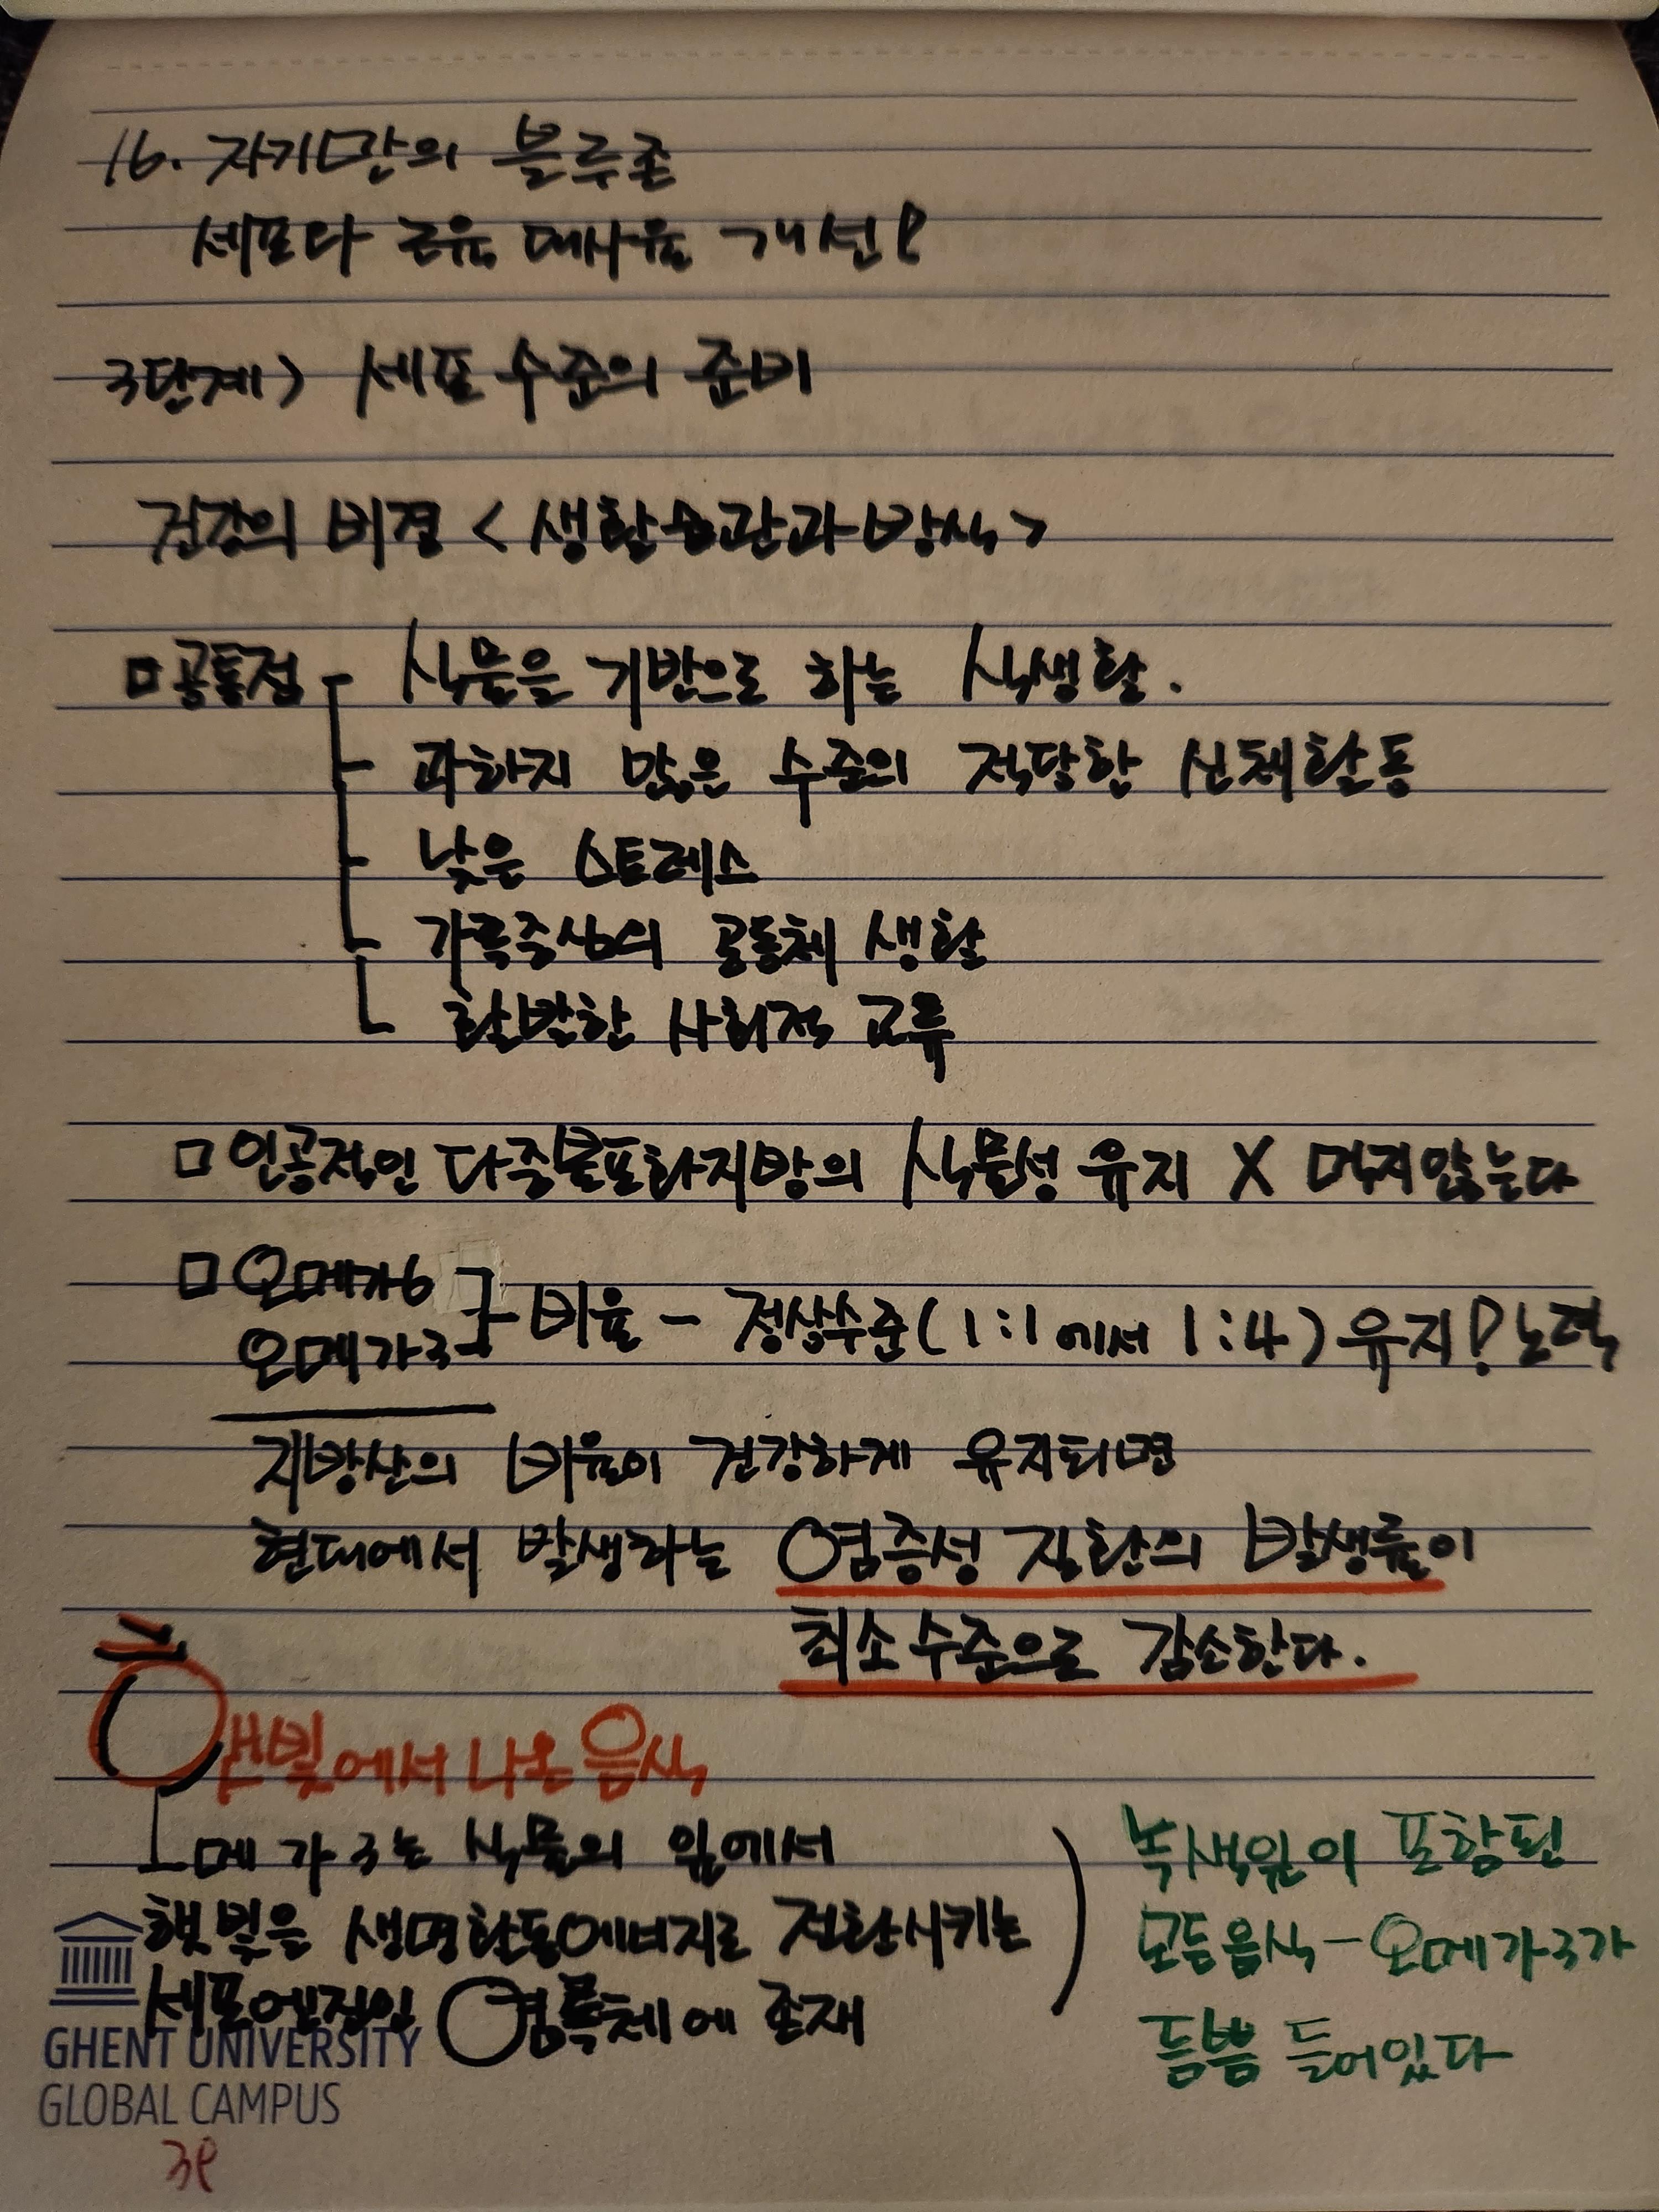 16. 자기만의 블루존
세포와 근육 대사율 개선!
3단계> 세포 수준의 준비
건강의 비결 <생활습관과 방식>
□ 공통점 - 식물을 기반으로 하는 식생활.
- 과하지 않은 수준의 적당한 신체활동
- 낮은 스트레스
- 가족중심의 공동체 생활
활발한 사회적 교류
□ 인공적인 다중불포화지방의 식물성 유지 X 먹지않는다
□ 오메가6
오메가3
비율 - 정상수준(1:1에서 1:4)유지! 노력
지방산의 비율이 건강하게 유지되면
현대에서 발생하는 염증성 질환의 발생률이
최소수준으로 감소한다.
햇빛에서 나온 음식
오메가3는 식물의 잎에서
햇빛을 생명활동에너지로 전환시키는
세포엔진인 엽록체에 존재
녹색잎이 포함된
모든음식-오메가3가
듬뿍 들어있다
GHENT UNIVERSITY
GLOBAL CAMPUS